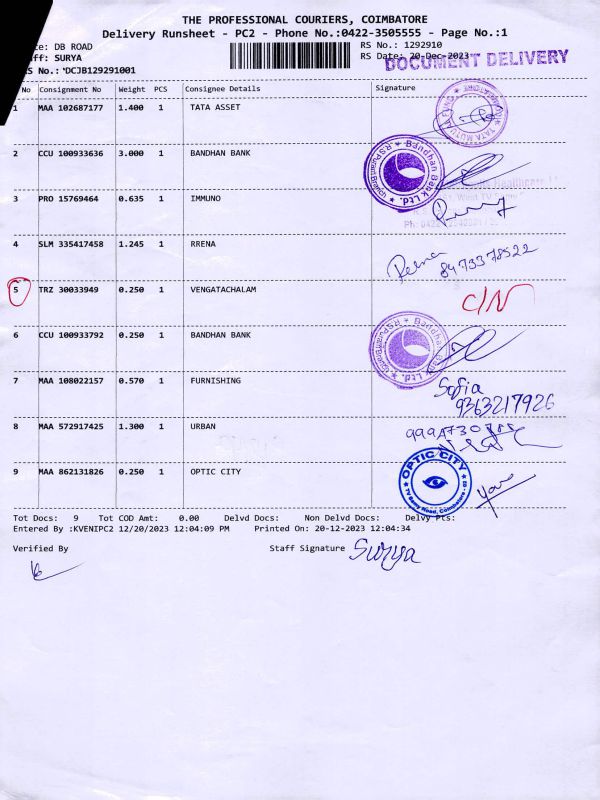 THE PROFESSIONAL COURIERS, COIMBATORE
Delivery Runsheet - PC2 - Phone No.:0422-3505555 - Page No.:1
te: DB ROAD
RS No.: 1292910
aff: SURYA
RS Date: 20-Dec-2023
DOCUMENT DELIVERY
S No.: *DCJB129291001
No Consignment No Weight PCS Consignee Details Signature
1 MAA 102687177 1.400 1 TATA ASSET
2 CCU 100933636 3.000 1 BANDHAN BANK
Bandhan Bank Ltd.
3 PRO 15769464 0.635 1 IMMUNO
4 SLM 335417458 1.245 1 RRENA
8473378522
5 TRZ 30033949 0.250 1 VENGATACHALAM
C/N
6 CCU 100933792 0.250 1 BANDHAN BANK
Bandhan Bank Ltd.
7 MAA 108022157 0.570 1 FURNISHING
Sofia
9363217926
8 MAA 572917425 1.300 1 URBAN
9 MAA 862131826 0.250 1 OPTIC CITY
OPTIC CITY
Tot Docs: 9 Tot COD Amt: 0.00 Delvd Docs: Non Delvd Docs: Delvy Pts:
Entered By :KVENIPC2 12/20/2023 12:04:09 PM Printed On: 20-12-2023 12:04:34
Verified By Staff Signature Surya